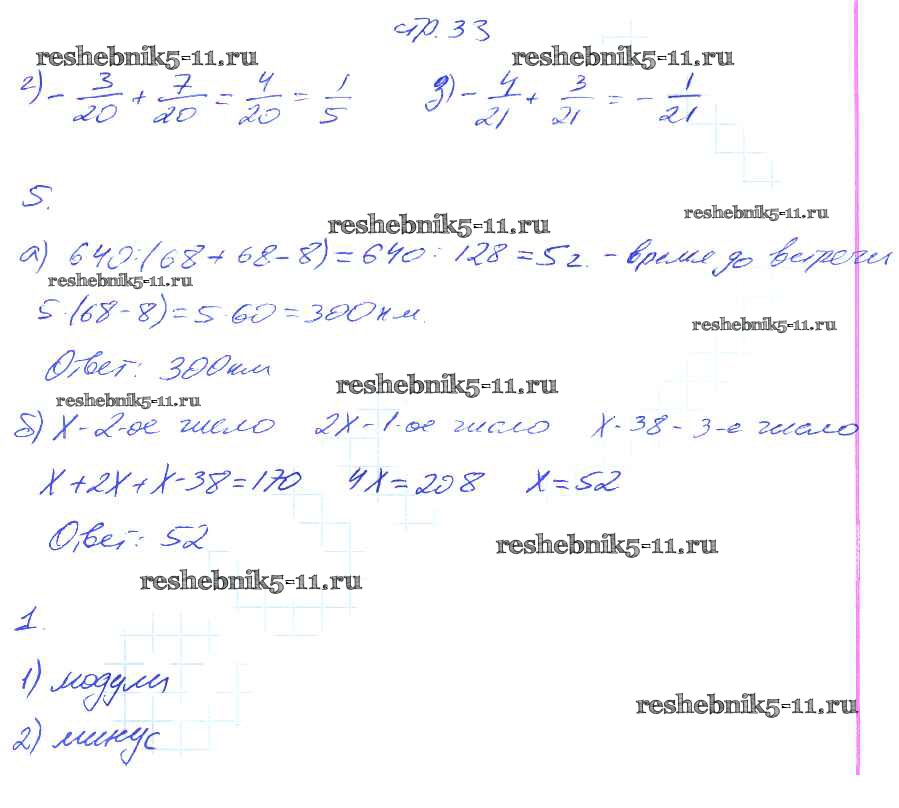 стр. 33
reshebnik5-11.ru reshebnik5-11.ru
г) - 3/20 + 7/20 = 4/20 = 1/5 д) - 4/21 + 3/21 = - 1/21
5.
reshebnik5-11.ru reshebnik5-11.ru
а) 640:(68+68-8)=640:128=5 г. - время до встречи
reshebnik5-11.ru
5·(68-8)=5·60=300км.
reshebnik5-11.ru
Ответ: 300км
reshebnik5-11.ru
reshebnik5-11.ru
б) X - 2-ое число 2X - 1-ое число X-38 - 3-е число
X+2X+X-38=170 4X=208 X=52
Ответ: 52
reshebnik5-11.ru
reshebnik5-11.ru
1.
1) модули
reshebnik5-11.ru
2) минус